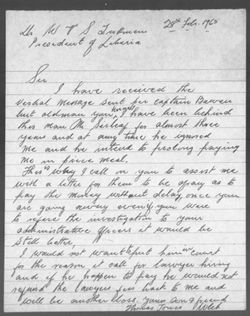 28th Feb. 1960
Dr W V S Tubman
President of Liberia
Sir
I have received the
Verbal Message sent per Captain Bowen
but oldman yung, I have been behind
this man for almost three
years and at any time he ignored
me and he intend to prolong paying
me in piece meal.
This why I call on you to assist me
with a letter for them to be okay as to
pay the money without delay, once you
are going away even if you were
to refere the investigation to your
administrative officers it would be
still better,
I would not want to put him in court
for the reason it call for lawyer hiring
and if he happen to pay he would not
refund the lawyer fees back to me and
will be another lose. Your own friend
Thomas